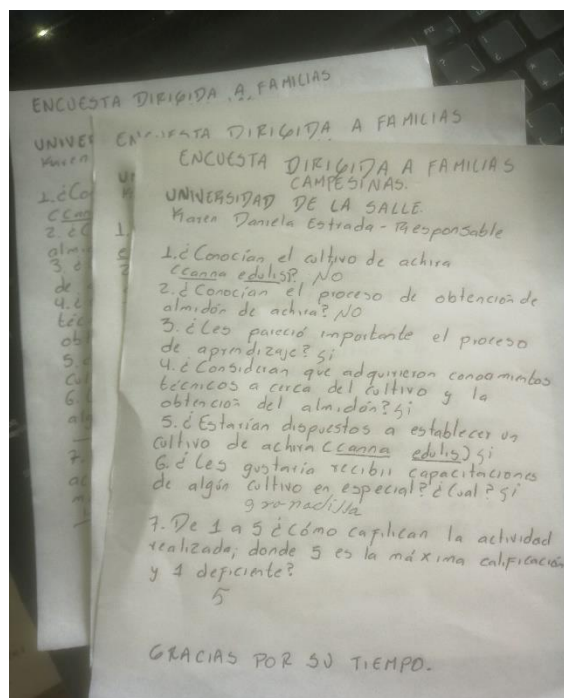 ENCUESTA DIRIGIDA A FAMILIAS
UNIVER
Karen
1.¿Co
(Can
2. ¿C
almi
3. ¿
de
4.¿
téc
obt
5. ¿
cul
6. ¿
alg
7.
ac
ENCUESTA DIRIGIDA A FAMILIAS
ENCUESTA DIRIGIDA A FAMILIAS
CAMPESINAS.
UNIVERSIDAD DE LA SALLE.
Karen Daniela Estrada - Responsable
1.¿Conocían el cultivo de achira
(canna edulis)? NO
2.¿Conocían el proceso de obtención de
almidón de achira? NO
3. ¿Les pareció importante el proceso
de aprendizaje? si
4.¿Consideran que adquirieron conocimientos
técnicos a cerca del cultivo y la
obtención del almidón? si
5.¿Estarían dispuestos a establecer un
cultivo de achira (canna edulis) si
6.¿Les gustaría recibir capacitaciones
de algún cultivo en especial? ¿Cual? si
granadilla
7. De 1 a 5 ¿Cómo califican la actividad
realizada; donde 5 es la máxima calificación
y 1 deficiente?
5
GRACIAS POR SU TIEMPO.